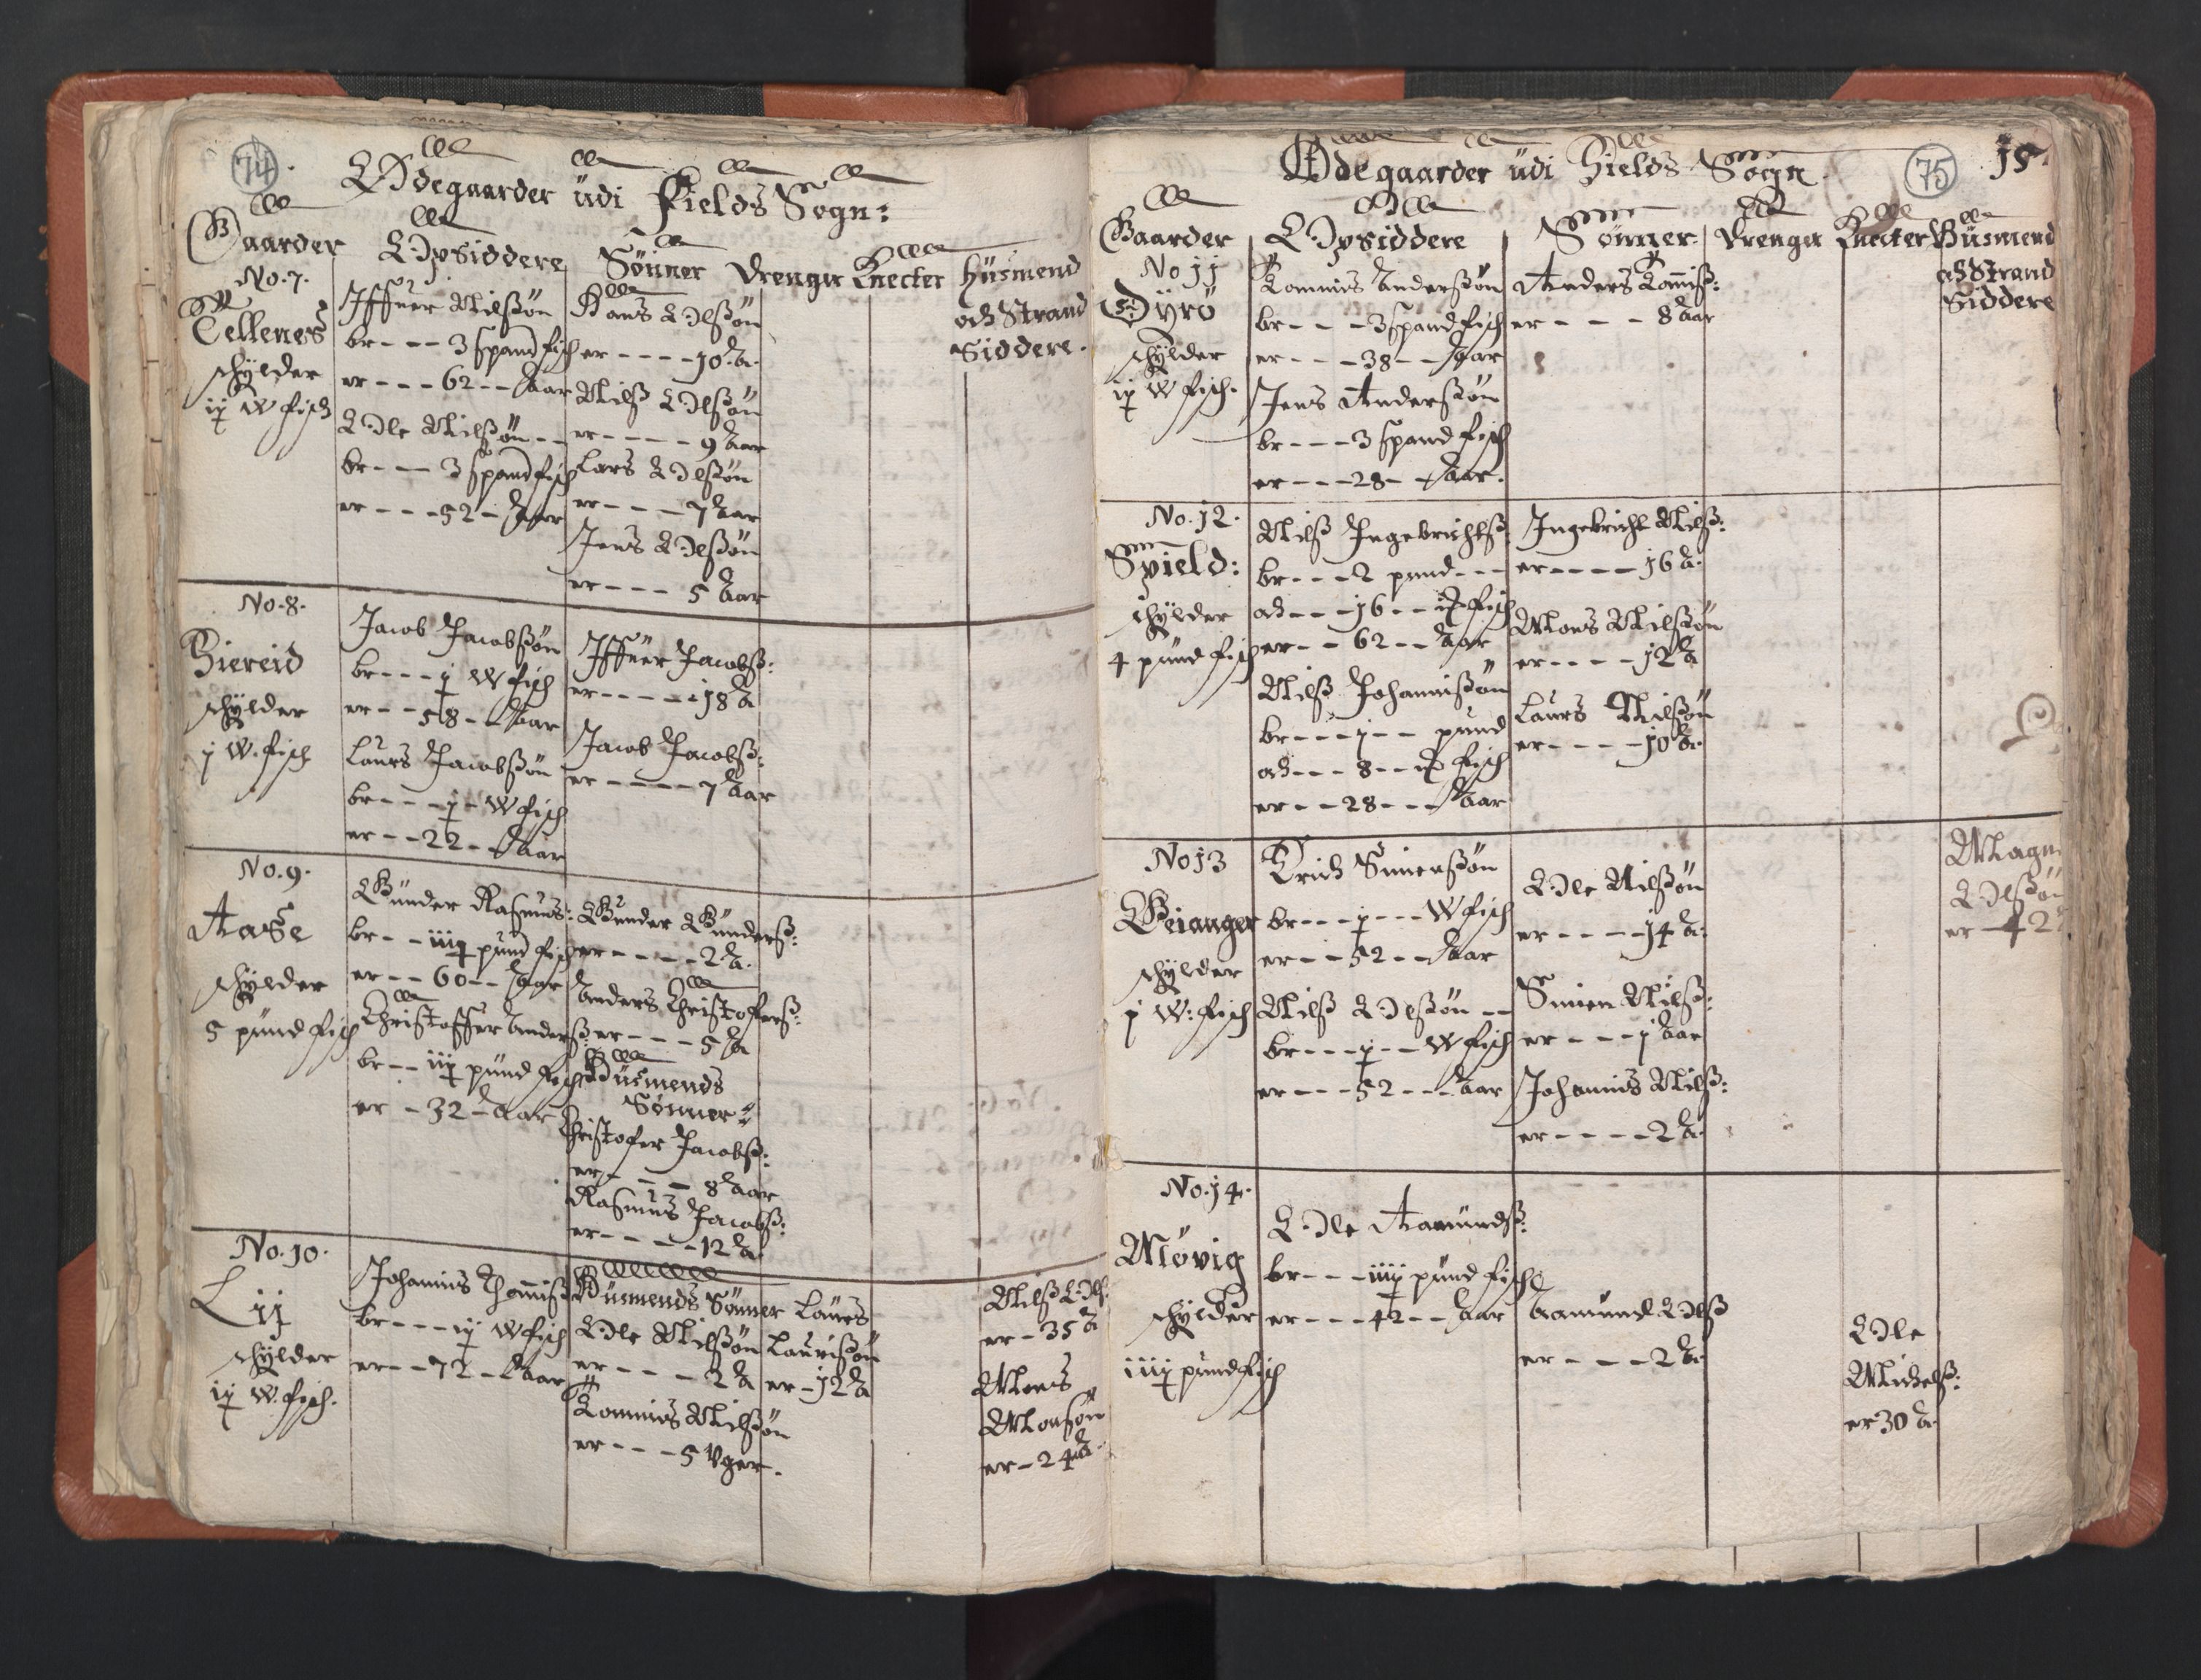 74.
Ødegaarder üdi Fields Sogn:
Gaarder
Opsiddere
Sönner
Drenger
Knecter
Hüsmend
och Strand
Siddere.
No. 7.
Tellenes
schÿlder
ij W fisch
Iffuer Nilsßön
br - - - 3 spand fisch
er - - - 62 - - Aar
Ole Nilsßön - -
br - - - 3 spand fisch
er - - - 52 - Aar
Hans Olsßön
er - - - - 10 A.
Nilß Olsßön
er - - - - - 9 Aar
Lars Olsßön
er - - - - 7 Aar
Jens Olsßön
er - - - 5 Aar
No. 8.
Biereid
schÿlder
j W. fisch
Jacob Jacobsßön
br - - - j W fisch
er - - 58 - - Aar
Laurs Jacobsßön
br - - - j - W fisch
er - - 22 - Aar
Iffüer Jacobsß:
er - - - - - 18 A
Jacob Jacobsß:
er - - - - - 7 Aar
No. 9.
Aase
schÿlder
5 pünd fisch
Günder Rasmüs:
br - - iij pund fisch
er - - 60 - - Aar
Christoffer Andersß:
br - - iij pünd fisch
er - 32 - Aar
Gunder Gündersß:
er - - - - - 2 A.
Anders Christofersß:
er - - - - 5 A
Hüsmends
Sønner:
Christofer Jacobsß:
er - - - - 8 Aar
Rasmüs Jacobsß:
er - - - - - 12 A
No. 10.
Lij
schÿlder
ij W. fisch.
Johannis Thomisß
br - - - ij W fisch
er - - 72 - Aar
Hüsmends Sönner
Ole Nilsßön
er - - - - 2 A
Tommis Nilsßön
er - - - 5 Vger.
Laürs
Laurisßön
er - 12 A
Nilß Ols:
er - 35 A
Mons
Monsön
er - 24 A.
75
15.
Ødegaarder üdi Fields Sogn
Gaarder
Opsiddere
Sönner
Drenger
Knecter
Hüsmend
och Strand
Siddere
No 11
Tÿrö
schÿlder
ij W fisch.
Tommis Andersßön
br - - - 3 spand fisch
er - - - 38 - - Aar
Jens Andersßön
br - - - 3 spand fisch
er - - - 28 - - Aar.
Anders Tomisß:
er - - - - 8 Aar
No. 12.
Spield:
schÿlder
4 pünd fisch
Nilß Ingebrichtsß:
br - - - 2 pund - - -
och - - - 16 - - fisch
er - - 62 - - Aar
Nilß Johannisßön
br - - - j - - pünd
och - - - 8 - - fisch
er - - 28 - - - Aar
Ingebricht Nilsß:
er - - - - - 16 A.
Mons Nilsßön
er - - - - - 12 A
Laurs Nilsßön
er - - - - - 10 A.
No 13
Geianger
schÿlder
j W: fisch
Erich Simensßön
br - - - j - - - W fisch
er - - 52 - - Aar
Nilß Olsßön - -
br - - - j - - W fisch
er - - - 52 - - - Aar
Ole Nilsßön
er - - - - - 14 A.
Simen Nilsß:
er - - - - j Aar
Johannis Nilsß:
er - - - - - 2 A.
Magn
Olsßön
er - 42
No. 14.
Mövig
schÿlder
iiij pund fisch
Ole Aamündsß:
br - - - iiij pünd fisch
er - - - 42 - - Aar
Aamund Olsß
er - - - - 2 A.
Ole
Michelsß:
er 30 A.